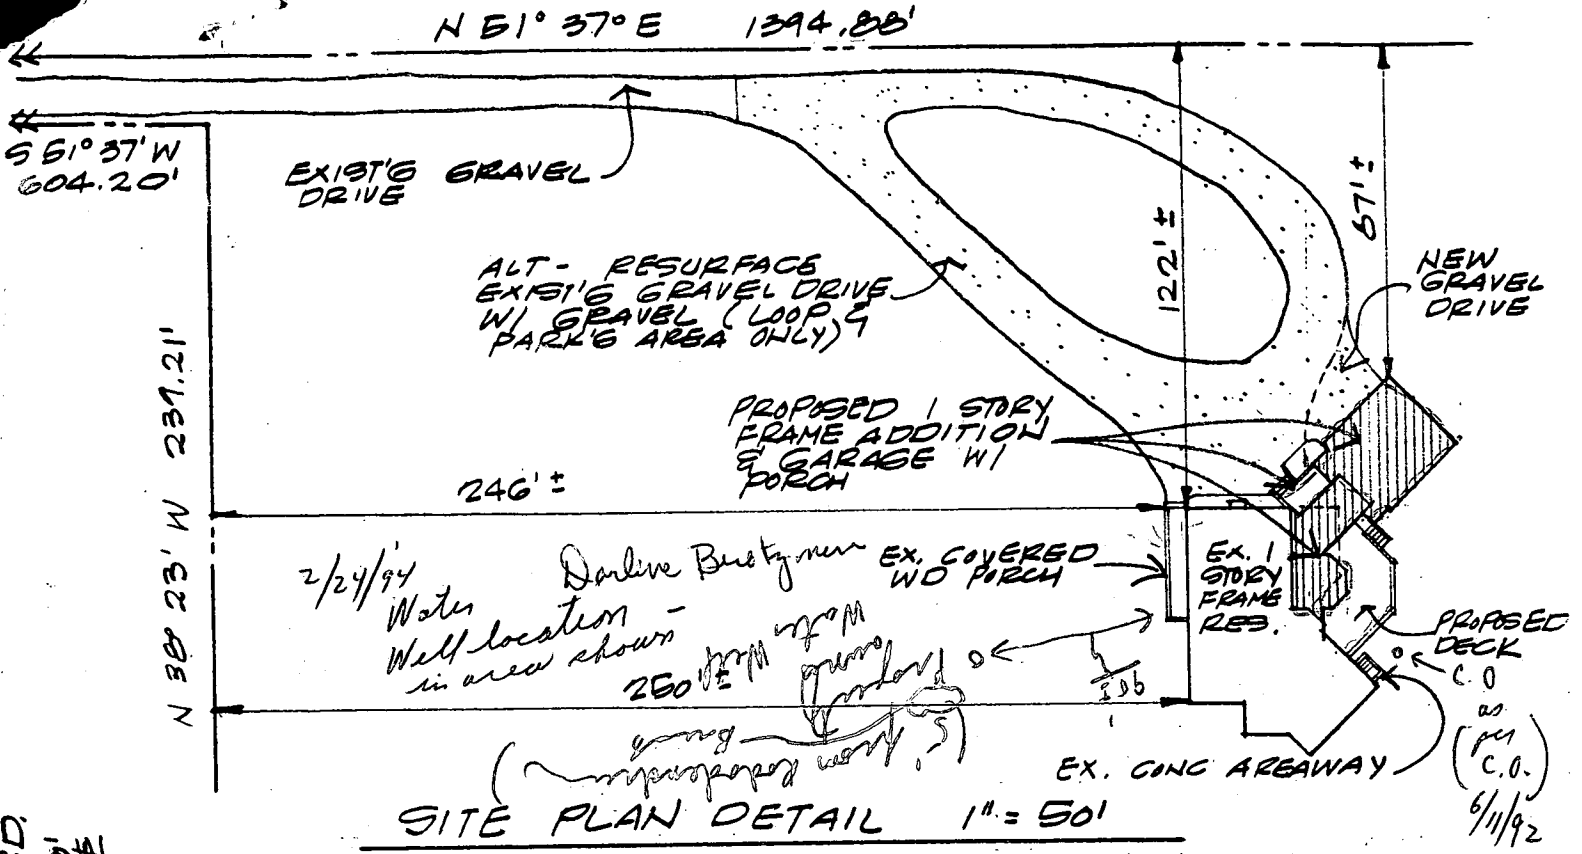 N 51° 37° E 1394.88'
S 51° 37' W
604.20'
EXIST'G GRAVEL
DRIVE
ALT - RESURFACE
EXIST'G GRAVEL DRIVE
W/ GRAVEL (LOOP &
PARK'G AREA ONLY)
122' ±
67' ±
NEW
GRAVEL
DRIVE
N 38° 23' W 239.21'
PROPOSED 1 STORY
FRAME ADDITION
& GARAGE W/
PORCH
246' ±
2/24/94
Water
Well location -
in area shown
Darline
EX. COVERED
WD PORCH
EX. 1
STORY
FRAME
RES.
PROPOSED
DECK
C.O
as
(per
C.O.)
6/11/92
250' ±
Water
Well
(5' from
EX. CONC AREAWAY
SITE PLAN DETAIL 1" = 50'